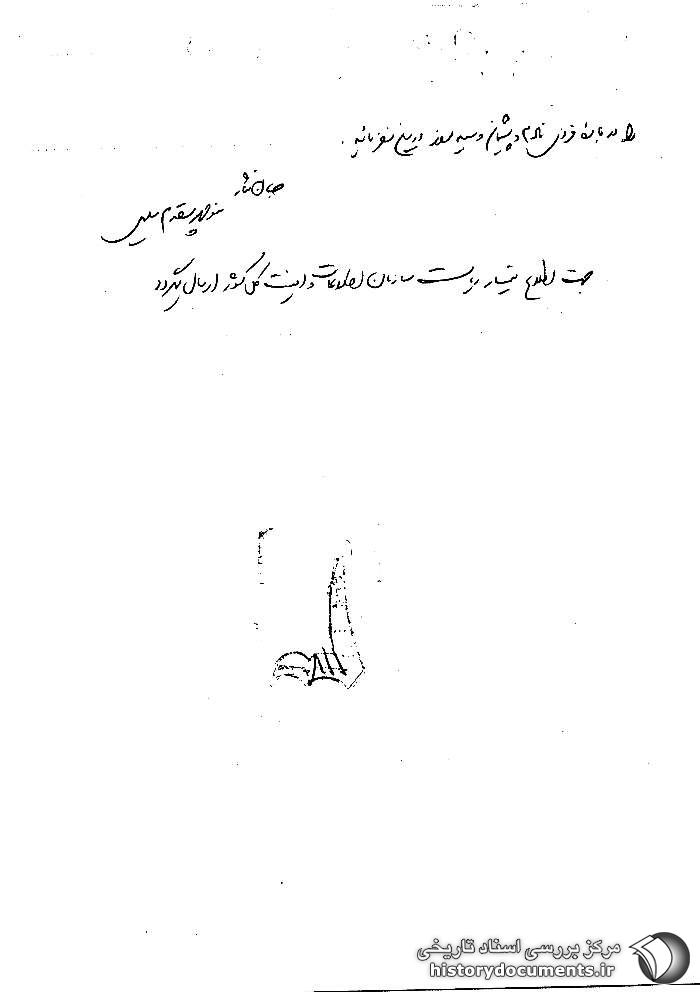 را درباره فردی نادم و پشیمان و سیه روز دریغ نفرمائید.
جان نثار
منوچهر مقدم سلیمی
جهت اطلاع تیمسار ریاست سازمان اطلاعات و امنیت کل کشور ارسال میگردد
مرکز بررسی اسناد تاریخی
historydocuments.ir